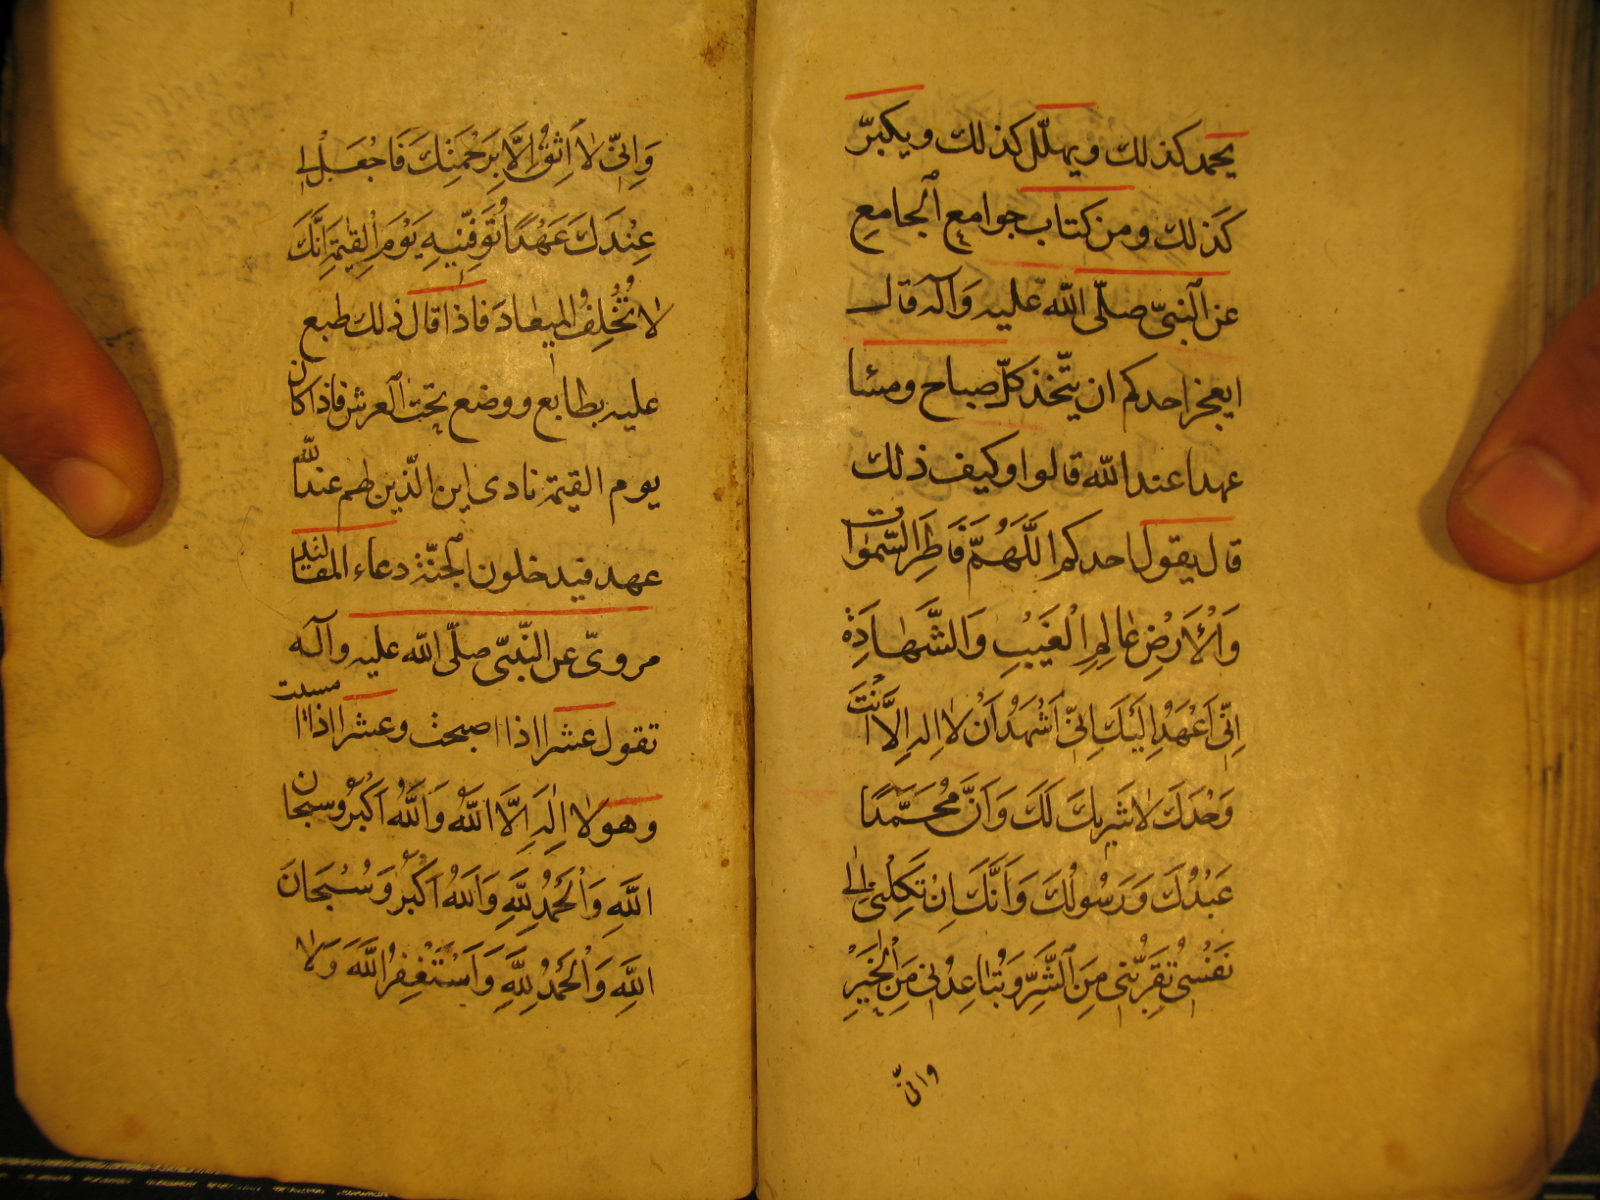 يحمد كذلك ويهلّل كذلك ويكبّر
كذلك ومن كتاب جوامع الجامع
عن النبىّ صلّى الله عليه وآله قال
ايعجز احدكم ان يتّخذ كلّ صباح ومسٰا
عهدا عند الله قالوا وكيف ذلك
قال يقول احدكم اللَّهُمَّ فَاطِرَ السَّمٰوات
وَالْأَرْضِ عٰالِمَ الْغَيْبِ وَالشَّهٰادَةِ
اِنّى اَعْهَدُ اِلَيْكَ اِنّى اَشْهَدُ اَنْ لٰا اِلهَ اِلَّا اَنْتَ
وَحْدَكَ لٰا شَرِيكَ لَكَ وَاَنَّ مُحَمَّدًا
عَبْدُكَ وَرَسُولُكَ وَاَنَّكَ اِنْ تَكِلْنى اِلٰى
نَفْسى تُقَرِّبْنى مِنَ الشَّرِّ وَتُبٰاعِدْنى مِنَ الْخَيْرِ
وانّى
وَاِنّى لٰا اَثِقُ اِلَّا بِرَحْمَتِكَ فَاجْعَلْ لى
عِنْدَكَ عَهْدًا تُوَفّنِيهِ يَوْمَ الْقِيٰمَةِ اِنَّكَ
لٰا تُخْلِفُ الْمِيعٰادَ فاذا قال ذلك طبع
عليه بطابع ووضع تحت العرش فاذا كان
يوم القيمة نادى اين الّذين لهم عند الله
عهد فيدخلون الجنّة دعاء المقاليد
مروىّ عن النّبىّ صلّى الله عليه وآله
تقول عشرا اذا اصبحت وعشرا اذا امسيت
وهو لٰا اِلٰهَ اِلَّا اللّٰهُ وَاللّٰهُ اَكْبَرُ وسبحان
اللّٰهِ وَالْحَمْدُ لِلّٰهِ وَاللّٰهُ اَكْبَرُ وَسُبْحَانَ
اللّٰهِ وَالْحَمْدُ لِلّٰهِ وَاَسْتَغْفِرُ اللّٰهَ وَلٰا